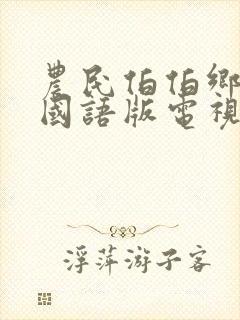 農民伯伯鄉
國語版電視
浮萍游子客